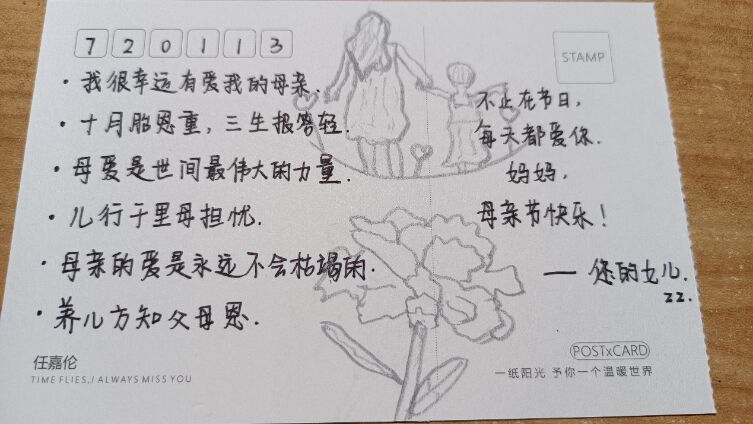 720113
STAMP
· 我很幸运有爱我的母亲.
· 十月胎恩重，三生报答轻.
· 母爱是世间最伟大的力量.
· 儿行千里母担忧.
· 母亲的爱是永远不会枯竭的.
· 养儿方知父母恩.
不止在节日，
每天都爱你.
妈妈，
母亲节快乐！
—— 您的女儿.
zz.
任嘉伦
TIME FLIES,I ALWAYS MISS YOU
POSTxCARD
一纸阳光 予你一个温暖世界